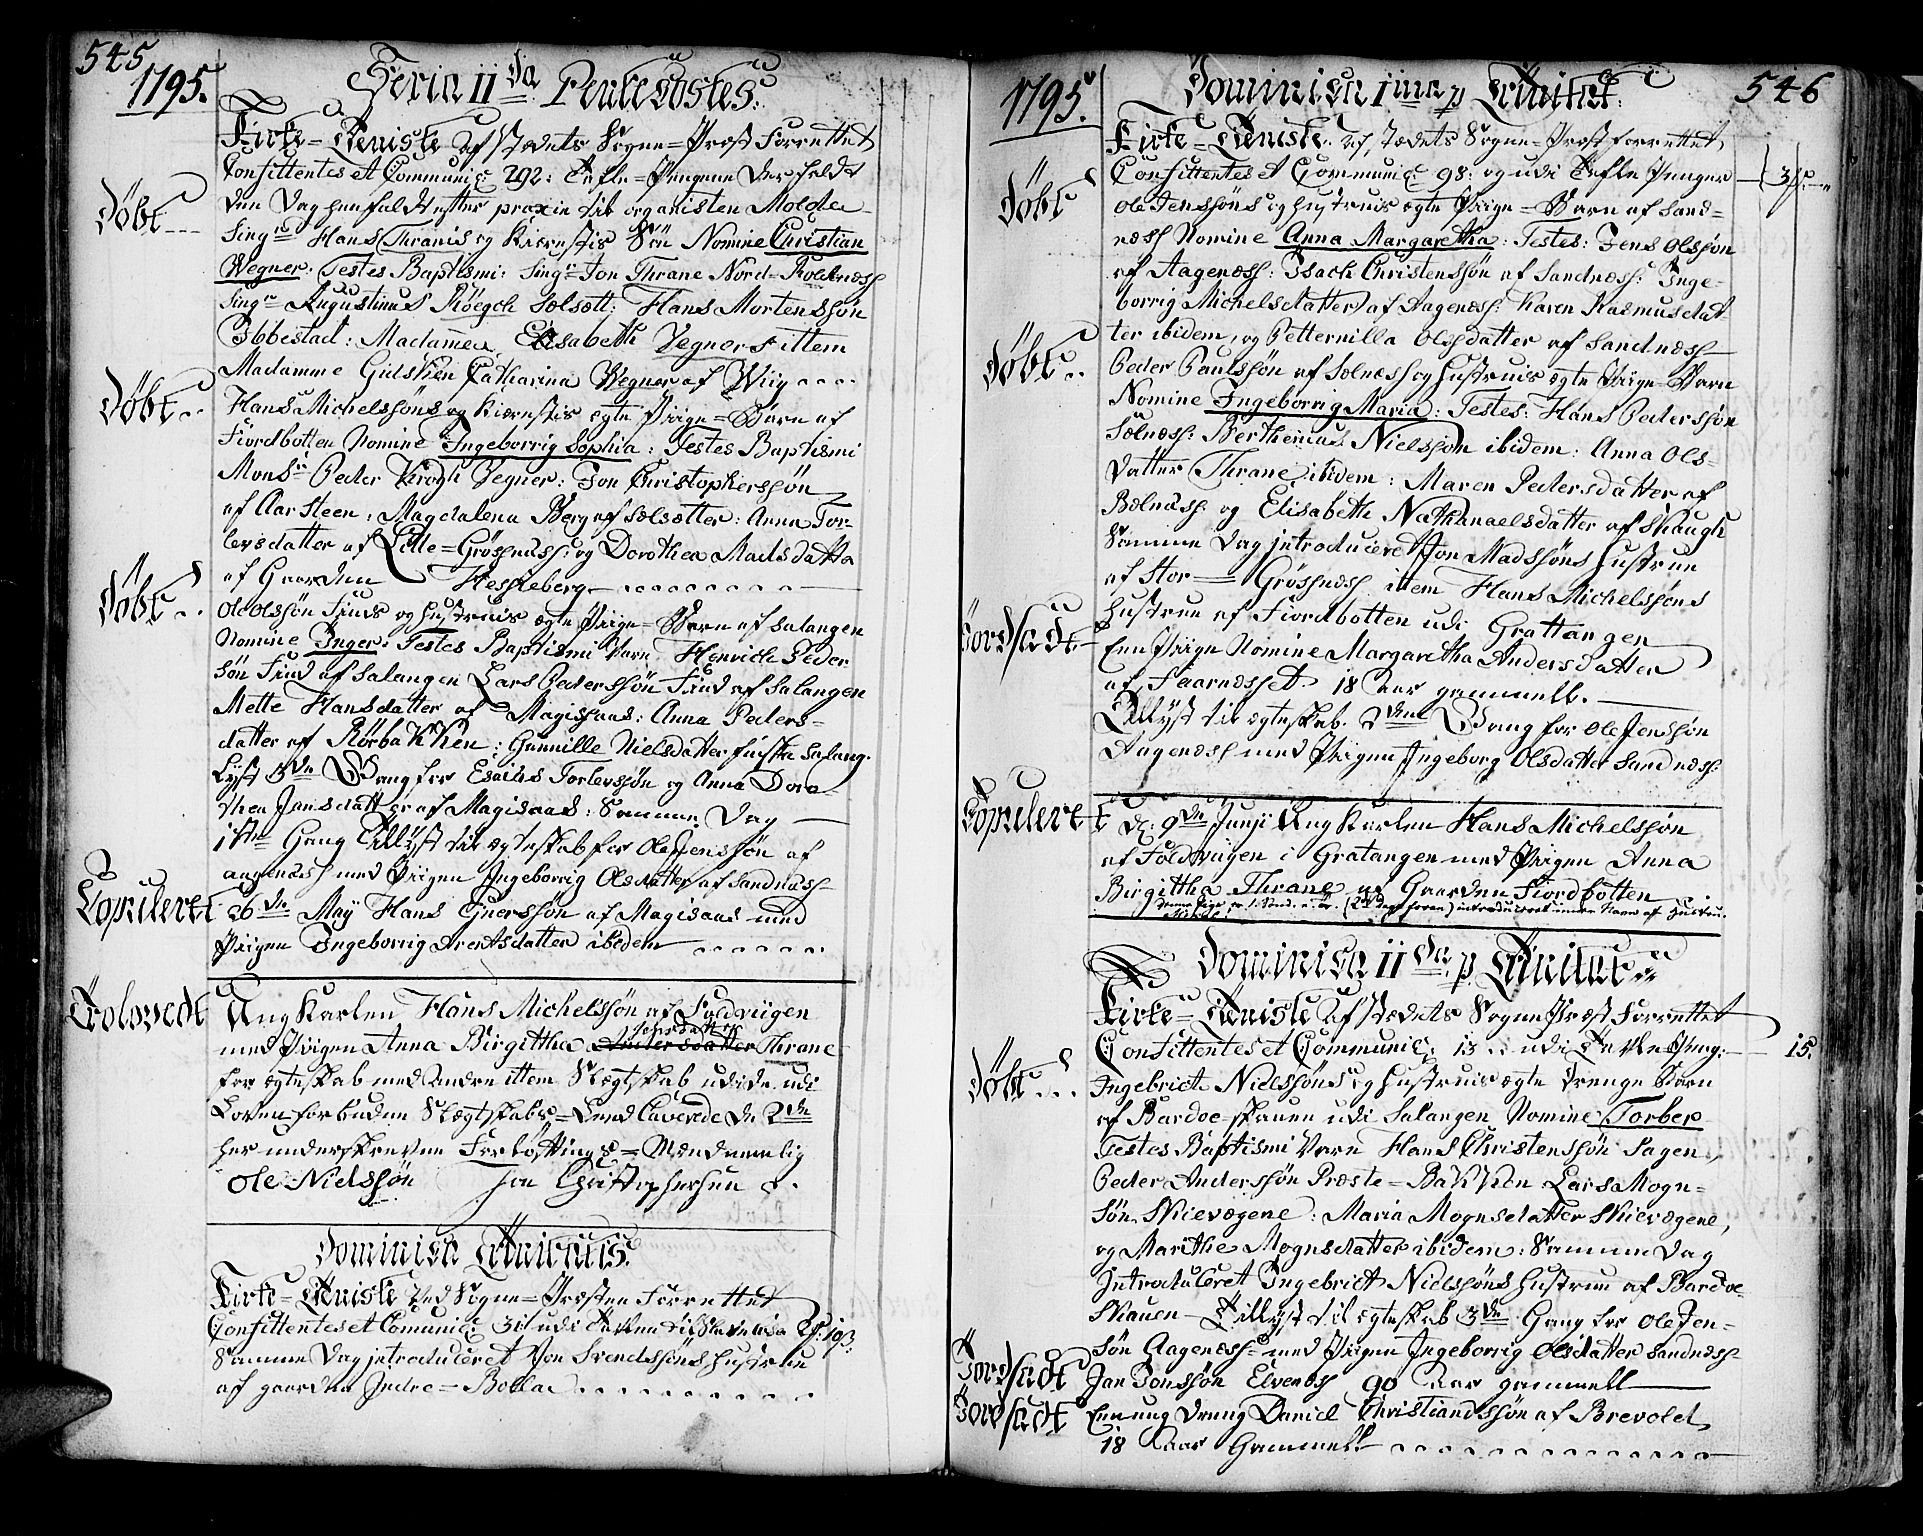 545
1795.
Feria II da Pentecostes.
Kirke=Tieniste af Stædets Sogne=Præst Forrettet
Confittentes et Communic: 292: Tafle=Pengene der faldt
den Dag henfaldt efter praxin til organisten Molde
Døbt
Sing:r Hans Thranis og Kiærestis Søn Nomine Christian
Wegner: Testes Baptismi: Sing:r Jon Thrane Nord=Rollnæss
Sing:r Augustinus Röegch Sælsætt: Hans Mortenssön
Ibbestad: Madamen Elisabeth Vegner ittem
Madamme Gidsken Catharina Wegner af Wiig
Døbt
Hans Michelssöns og Kiærestis ægte Piige=Barn af
Fiordbotten Nomine Ingeborrig Sophia: Testes Baptismi
Mons:r Peder Krogh Vegner: Jon Christopherssön
af Aarsteen: Magdalena Berg af Sælsætter: Anna Tor-
levsdatter af Lille=Grösnæss: og Dorothea Madsdatter
af Gaarden Hessleberg
Døbt
Ole Olssön Finds og Hustruis ægte Piige=Barn af Salangen
Nomine Inger: Testes Baptismi Varn Henrich Peder
sön Find af Salangen Lars Pederssön Find af Salangen
Mette Hansdatter af Magisaas: Anna Peders-
datter af Rörbakken: Gunnille Nielsdatter finska Salang.
Lyst 3de Gang for Esaias Torlevssön og Anna Doro
thea Jansdatter af Magisaas: Samme Dag
1ste Gang Tillyst til ægteskab for Ole Jenssön af
aagenæss med Piigen Ingeborrig Olsdatter af Sandnæss
Copuleret
26de May Hans Ejnerssön af Magisaas med
Piigen Ingeborrig Arentsdatter ibidem
Trolovedt
Ung Karlen Hans Michelssön af Foldviigen
Jonsdatter
med Piigen Anna Birgittha Andersdatter Thrane
for ægteskab med andre ittem Slægtskab udi de udi
Loven forbudne Slægtskabs=Leed Caverede de 2de
her underskrevne Forlöftnings=Mænd nemlig
Ole Nielssön Jon Christophersen
Dominica Trinitatis.
Kirke=Tieniste Ved Sogne=Præsten Forrettet
Confittentes et Comunic: 31 udi Tavlen
Samme Dag introduceret Jon Svendssöns Hustrue
af gaarden Indre=Bolla
1795.
Dominica I ma p Trinitat:
546
Kirke=Tieniste af Stædets Sogne=Præst forrettet
Confittentes et Communic: 98: og udi Tafle Penger
Døbt
Ole Jenssöns og hustruis ægte Piige=Barn af Sand=
næss Nomine Anna Margaretha: Testes: Jens Olssön
af Aagenæss: Isach Christenssön af Sandnæss: Inge-
borrig Michelsdatter af Aagenæss: Karen Rasmusdat
ter ibidem, og Petternilla Olsdatter af Sandnæss
Døbt
Peder Paulssön af Sølnæss og Hustruis ægte Piige=Barn
Nomine Ingeborrig Maria: Testes: Hans Pederssön
Sølnæss: Berthenius Nielssön ibidem: Anna Ols-
datter Thrane ibidem: Maren Pedersdatter af
Bælnæss og Elisabeth Nathanaelsdatter af Skaugh
Samme Dag introduceret Jon Madssöns Hustrue
af Stor=Grösnæss ittem Hans Michelssöns
Hustrue af Fiordbotten udi Grattangen
Jordsadt
Een Piige Nomine Margaretha Andersdatter
af Faarnæsset 18 Aar gammell.
Tillyst til ægteskab 2den Gang for Ole Jenssön
Aagenæss med Piigen Ingeborg Olsdatter Sandnæss
Copuleret
d: 9de Junji Ung Karlen Hans Michelssön
af Foldviigen i Gratangen med Piigen Anna
Birgittha Thrane af Gaarden Fiordbotten
Dominica II da p. Trinitat
Kirke=Tieniste af Stædets Sogne Præst Forrettet
Confittentes et Communic: 13 udi Tavle Peng: 15.
Døbt
Ingebrict Nielssöns og Hustruis ægte Drenge barn
af Bardoe-skauen udi Salangen Nomine Torber
Testes Baptismi Varn Hans Christenssön Sagen,
Peder Anderssön Præste=Bakken Lars Mogn=
sön Skievægene: Maria Mognsdatter Skievægene,
og Marithe Mognsdatter ibidem: Samme Dag
Introduceret Ingebrict Nielssöns Hustrue af Bardoe
Skauen Tillyst til ægteskab 3de Gang for Ole Jen=
sön Aagenæss med Piigen Ingeborrig Olsdatter Sandnæss
Jordsadt
Jan Jonssön Elvenes 90 Aar gammell
Jordsadt
Een ung Dreng Daniel Christianssön af Brevoldt
18 Aar Gammell